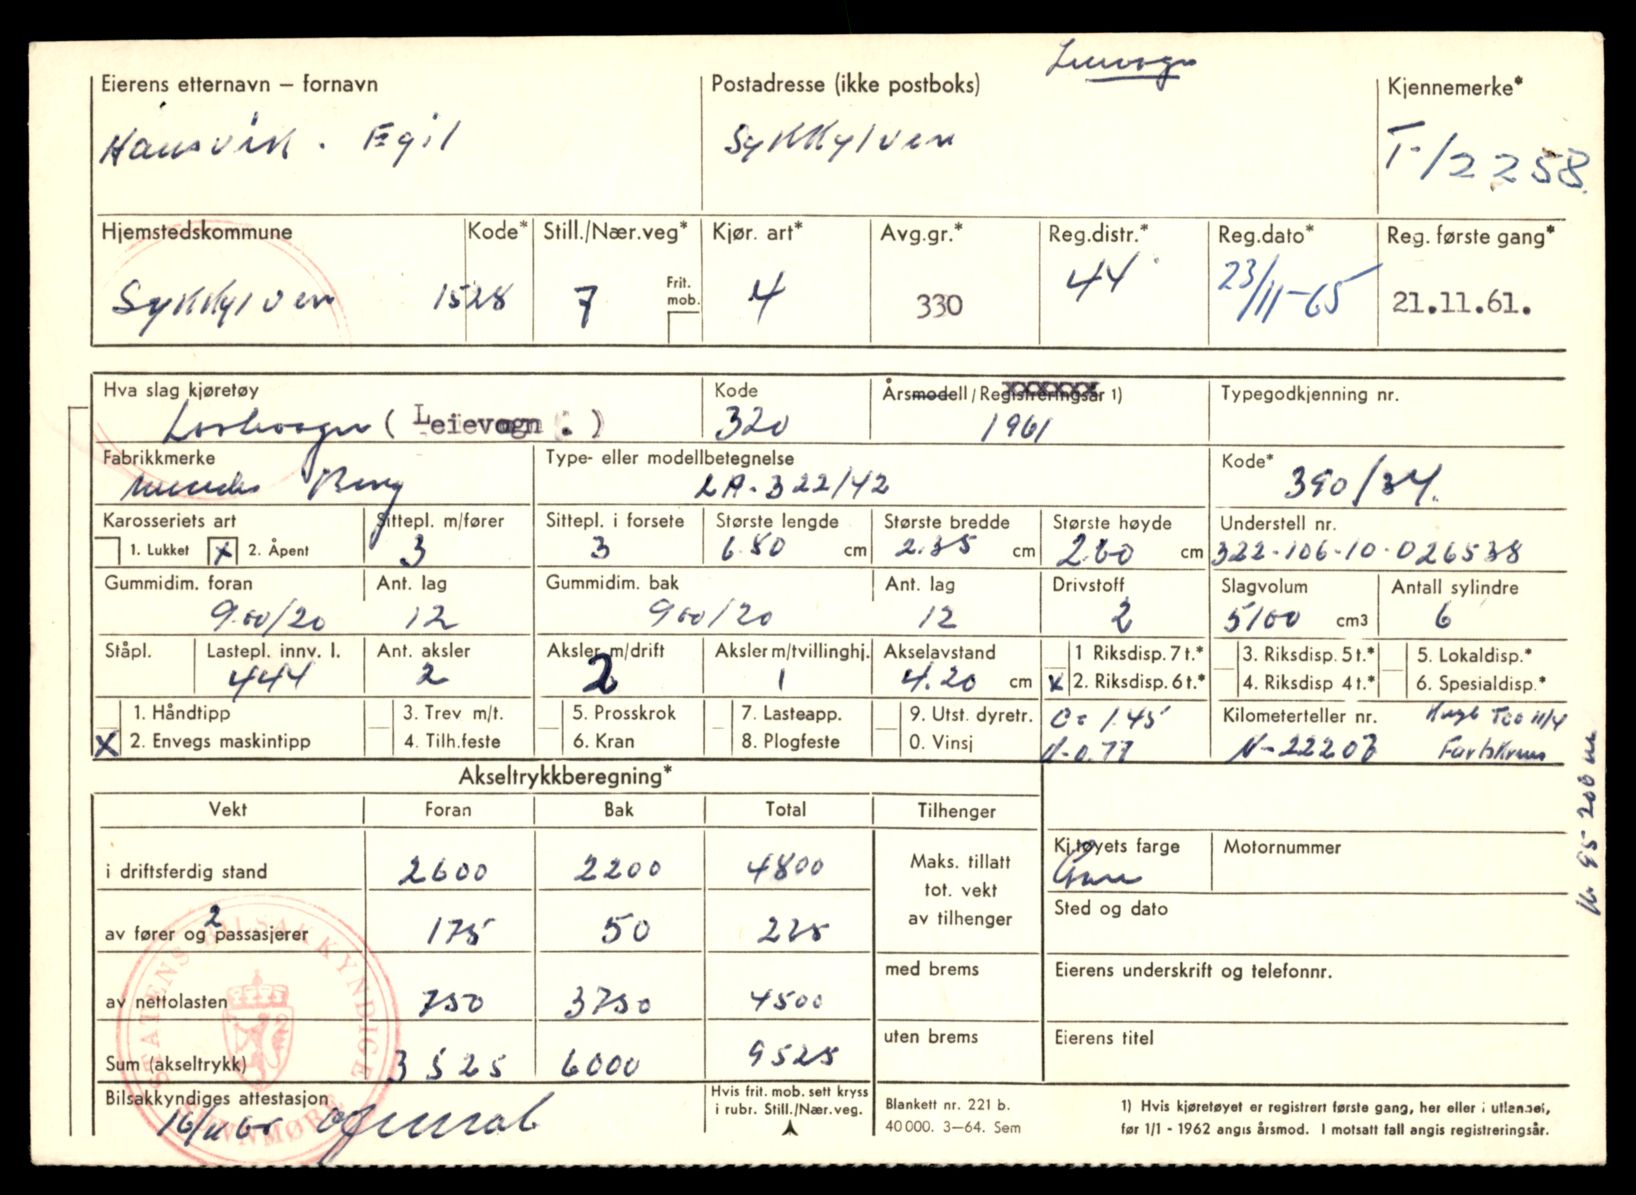 Leievogn
Eierens etternavn – fornavn
Postadresse (ikke postboks)
Kjennemerke*
Hausvik. Egil
Sykkylven
T-12258.
Hjemstedskommune
Kode*
Still./Nær.veg*
Kjør. art*
Avg.gr.*
Reg.distr.*
Reg.dato*
Reg. første gang*
Sykkylven
1528
7
Frit. mob.
4
330
44
23/11-65
21.11.61.
Hva slag kjøretøy
Kode
Årsmodell/Registreringsår 1)
Typegodkjenning nr.
(Leievogn.)
320
1961
Fabrikkmerke
Type- eller modellbetegnelse
Kode*
Benz
LA-322/42
390/34.
Karosseriets art
Sittepl. m/fører
Sittepl. i forsete
Største lengde
Største bredde
Største høyde
Understell nr.
1. Lukket
x 2. Åpent
3
3
6.80 cm
2.35 cm
2.60 cm
322-106-10-026538
Gummidim. foran
Ant. lag
Gummidim. bak
Ant. lag
Drivstoff
Slagvolum
Antall sylindre
9.00/20
12
900/20
12
2
5100 cm3
6
Ståpl.
Lastepl. innv. l.
Ant. aksler
Aksler m/drift
Aksler m/tvillinghj.
Akselavstand
1 Riksdisp. 7 t.*
3. Riksdisp. 5 t.*
5. Lokaldisp.*
444
2
2
1
4.20 cm
x 2. Riksdisp. 6 t.*
4. Riksdisp 4 t.*
6. Spesialdisp.*
1. Håndtipp
3. Trev m/t.
5. Prosskrok
7. Lasteapp.
9. Utst. dyretr.
0= 1.45
Kilometerteller nr.
x 2. Envegs maskintipp
4. Tilh.feste
6. Kran
8. Plogfeste
0. Vinsj
N-0.77
N-22203
Akseltrykkberegning*
Vekt
Foran
Bak
Total
Tilhenger
i driftsferdig stand
2600
2200
4800
Maks. tillatt tot. vekt av tilhenger
Kj.tøyets farge
Motornummer
av fører og 2 passasjerer
175
50
225
Sted og dato
av nettolasten
750
3750
4500
med brems
Eierens underskrift og telefonnr.
Sum (akseltrykk)
3525
6000
9525
uten brems
Eierens titel
Bilsakkyndiges attestasjon
Hvis frit. mob. sett kryss
i rubr. Still./Nær.veg.
Blankett nr. 221 b.
40 000. 3–64. Sem
1) Hvis kjøretøyet er registrert første gang, her eller i utlandet,
før 1/1 - 1962 angis årsmod. I motsatt fall angis registreringsår.
16/11 65
STATENS BILSAKKYNDIGE
SUNNMØRE